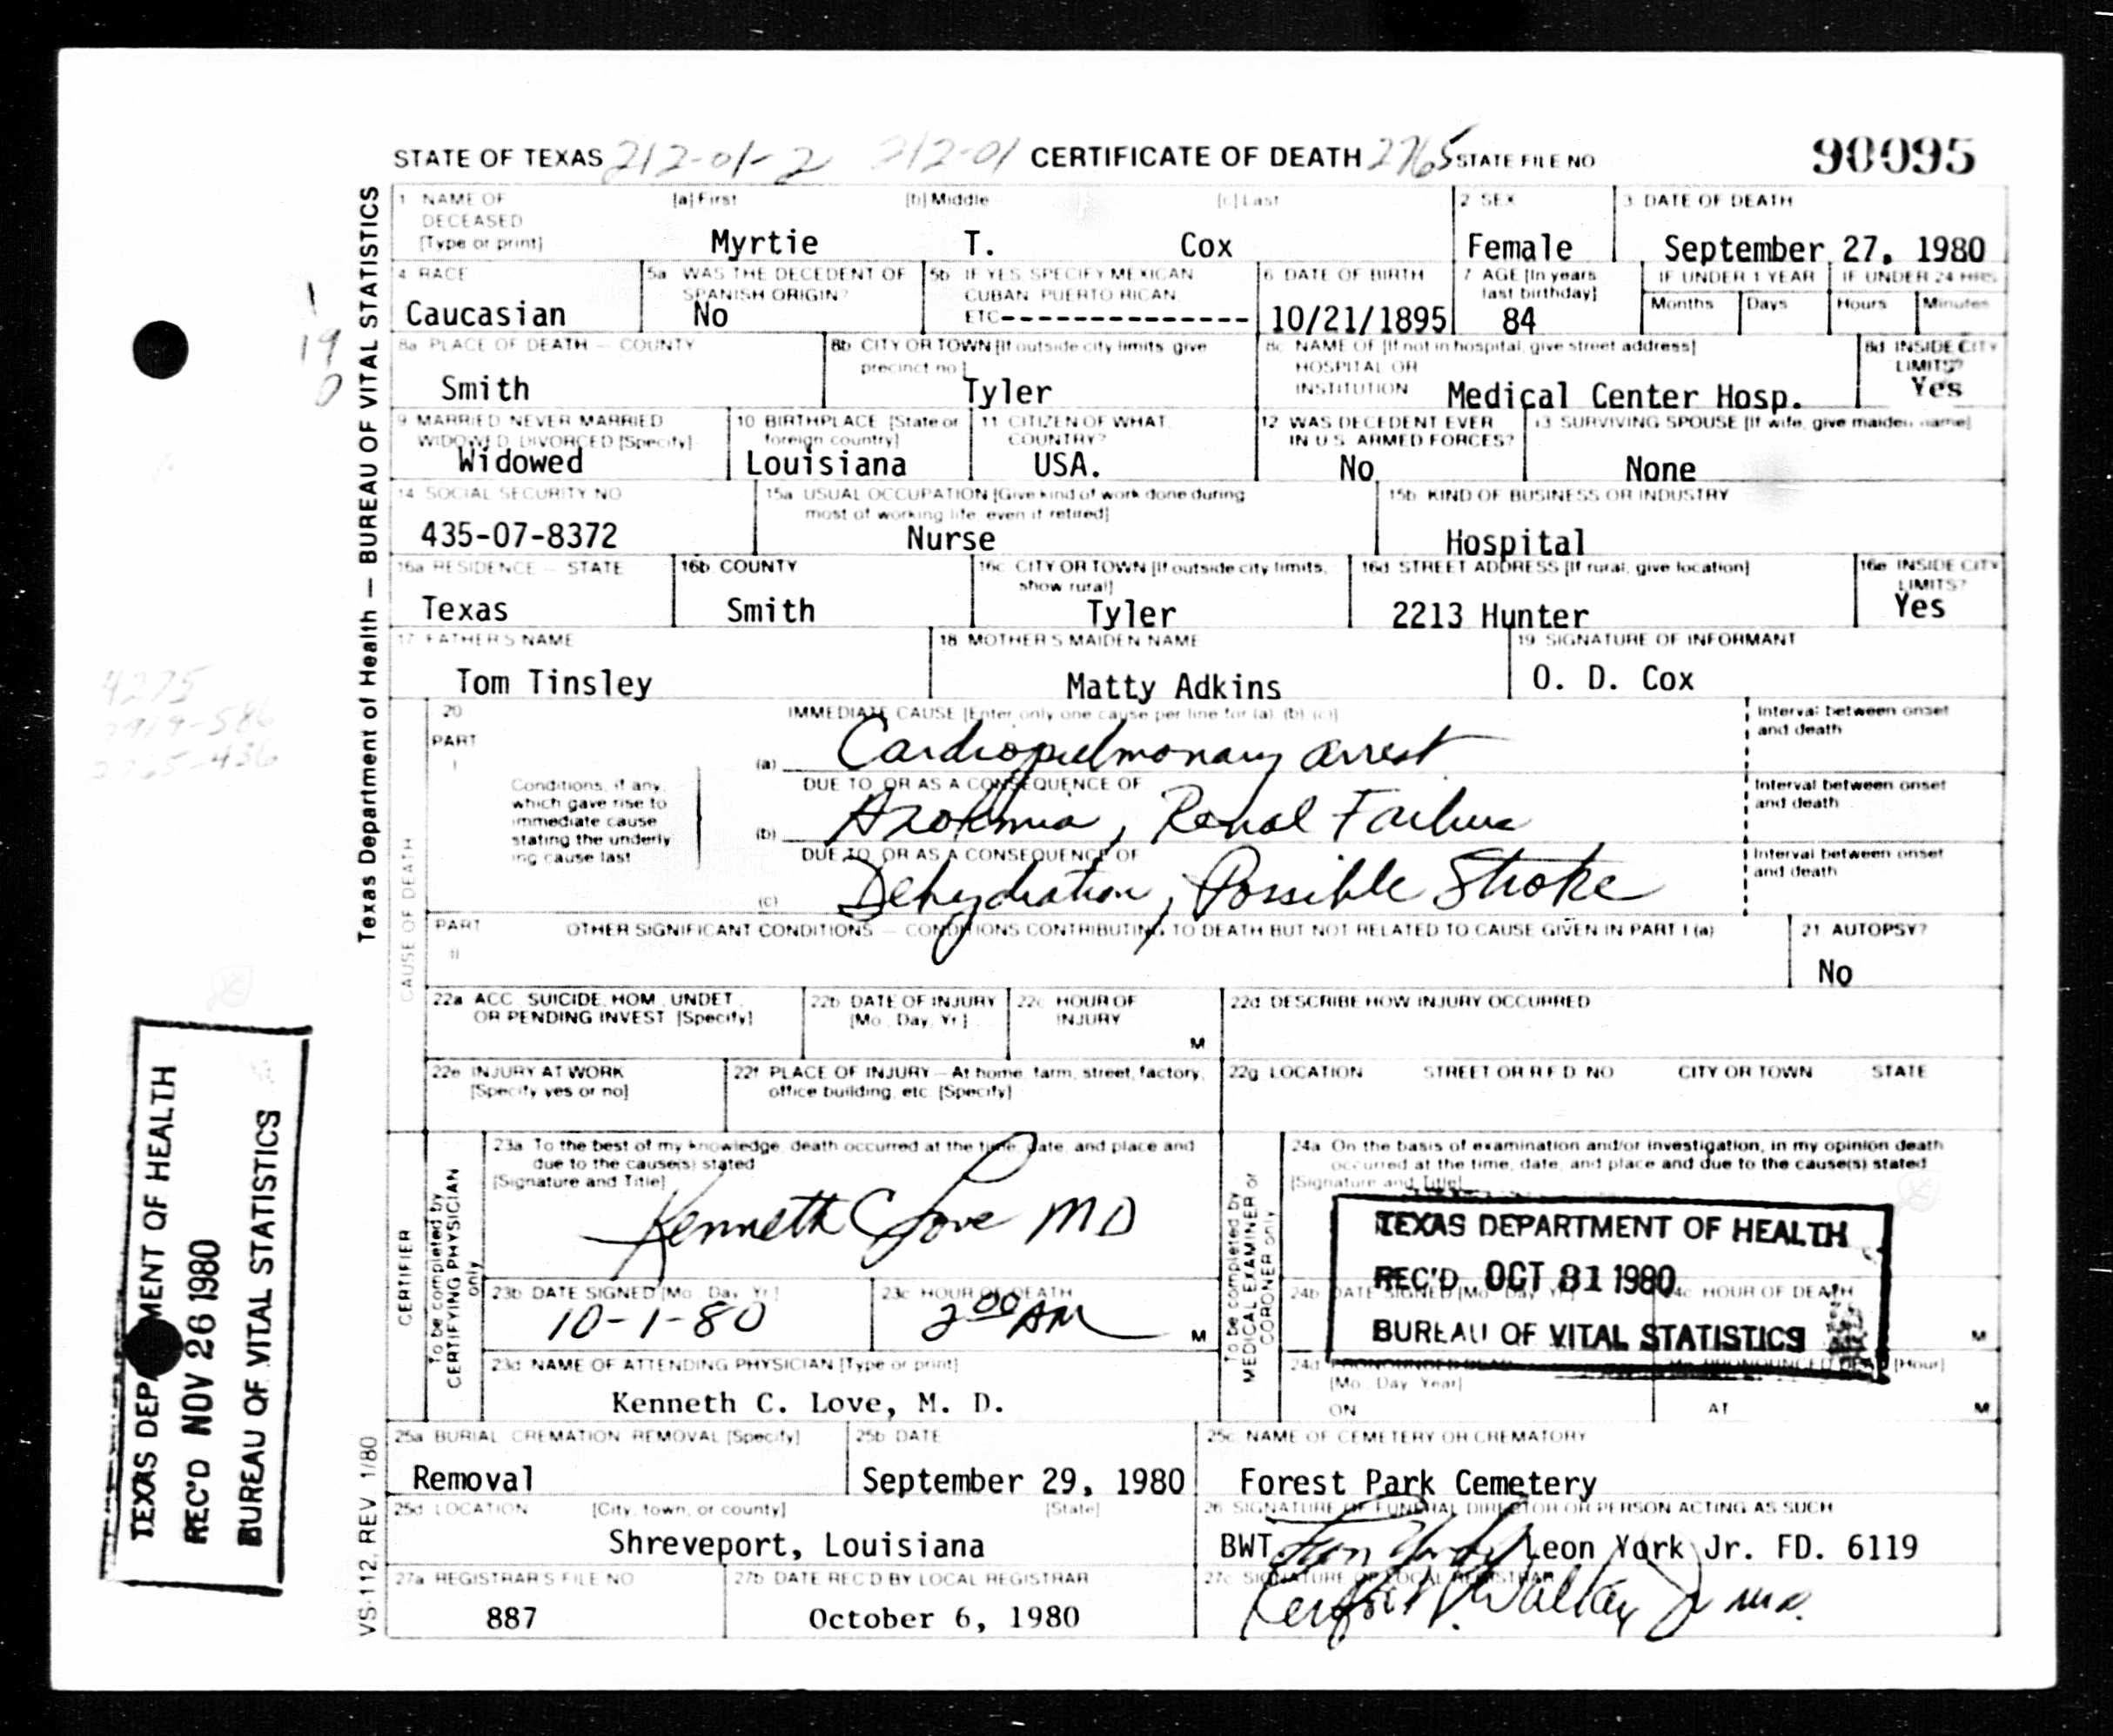 STATE OF TEXAS 212-01-2 212-01 CERTIFICATE OF DEATH 2765 STATE FILE NO 90095
Texas Department of Health — BUREAU OF VITAL STATISTICS
1 NAME OF DECEASED [Type or print] [a] First [b] Middle [c] Last
Myrtie T. Cox
2 SEX
Female
3 DATE OF DEATH
September 27, 1980
4 RACE
Caucasian
5a WAS THE DECEDENT OF SPANISH ORIGIN?
No
5b IF YES SPECIFY MEXICAN CUBAN PUERTO RICAN, ETC--------------
6 DATE OF BIRTH
10/21/1895
7 AGE [In years last birthday]
84
IF UNDER 1 YEAR
Months Days
IF UNDER 24 HRS
Hours Minutes
8a PLACE OF DEATH — COUNTY
Smith
8b CITY OR TOWN [If outside city limits, give precinct no]
Tyler
8c NAME OF [If not in hospital, give street address] HOSPITAL OR INSTITUTION
Medical Center Hosp.
8d INSIDE CITY LIMITS?
Yes
9 MARRIED NEVER MARRIED WIDOWED, DIVORCED [Specify]
Widowed
10 BIRTHPLACE [State or foreign country]
Louisiana
11 CITIZEN OF WHAT COUNTRY?
USA.
12 WAS DECEDENT EVER IN U.S. ARMED FORCES?
No
13 SURVIVING SPOUSE [If wife, give maiden name]
None
14 SOCIAL SECURITY NO
435-07-8372
15a USUAL OCCUPATION [Give kind of work done during most of working life, even if retired]
Nurse
15b KIND OF BUSINESS OR INDUSTRY
Hospital
16a RESIDENCE — STATE
Texas
16b COUNTY
Smith
16c CITY OR TOWN [If outside city limits, show rural]
Tyler
16d STREET ADDRESS [If rural, give location]
2213 Hunter
16e INSIDE CITY LIMITS?
Yes
17 FATHER'S NAME
Tom Tinsley
18 MOTHER'S MAIDEN NAME
Matty Adkins
19 SIGNATURE OF INFORMANT
O. D. Cox
CAUSE OF DEATH
20 PART I
IMMEDIATE CAUSE [Enter only one cause per line for (a), (b), (c)]
(a) Cardiopulmonary arrest
Interval between onset and death
Conditions, if any, which gave rise to immediate cause stating the underlying cause last
DUE TO, OR AS A CONSEQUENCE OF
(b) Azotemia, Renal Failure
Interval between onset and death
DUE TO, OR AS A CONSEQUENCE OF
(c) Dehydration, Possible Stroke
Interval between onset and death
PART II OTHER SIGNIFICANT CONDITIONS — CONDITIONS CONTRIBUTING TO DEATH BUT NOT RELATED TO CAUSE GIVEN IN PART I (a)
21 AUTOPSY?
No
22a ACC., SUICIDE, HOM., UNDET., OR PENDING INVEST. [Specify]
22b DATE OF INJURY [Mo., Day, Yr.]
22c HOUR OF INJURY
M
22d DESCRIBE HOW INJURY OCCURRED
22e INJURY AT WORK [Specify yes or no]
22f PLACE OF INJURY — At home, farm, street, factory, office building, etc. [Specify]
22g LOCATION STREET OR R.F.D. NO CITY OR TOWN STATE
CERTIFIER
To be completed by CERTIFYING PHYSICIAN only
23a To the best of my knowledge, death occurred at the time, date, and place and due to the cause(s) stated
[Signature and Title]
Kenneth C Love MD
23b DATE SIGNED [Mo., Day, Yr.]
10-1-80
23c HOUR OF DEATH
2 00 AM M
23d NAME OF ATTENDING PHYSICIAN [Type or print]
Kenneth C. Love, M. D.
To be completed by MEDICAL EXAMINER or CORONER only
24a On the basis of examination and/or investigation, in my opinion death occurred at the time, date, and place and due to the cause(s) stated
[Signature and Title]
TEXAS DEPARTMENT OF HEALTH
REC'D OCT 31 1980
BUREAU OF VITAL STATISTICS
24b DATE SIGNED [Mo., Day, Yr.]
24c HOUR OF DEATH
M
24d PRONOUNCED DEAD [Mo., Day, Year]
ON
PRONOUNCED DEAD [Hour]
AT M
25a BURIAL, CREMATION, REMOVAL [Specify]
Removal
25b DATE
September 29, 1980
25c NAME OF CEMETERY OR CREMATORY
Forest Park Cemetery
25d LOCATION [City, town, or county] [State]
Shreveport, Louisiana
26 SIGNATURE OF FUNERAL DIRECTOR OR PERSON ACTING AS SUCH
BWT Leon York Jr. FD. 6119
27a REGISTRAR'S FILE NO
887
27b DATE REC'D BY LOCAL REGISTRAR
October 6, 1980
27c SIGNATURE OF LOCAL REGISTRAR
VS-112, REV. 1/80
TEXAS DEPARTMENT OF HEALTH
REC'D NOV 26 1980
BUREAU OF VITAL STATISTICS
1
19
0
4275